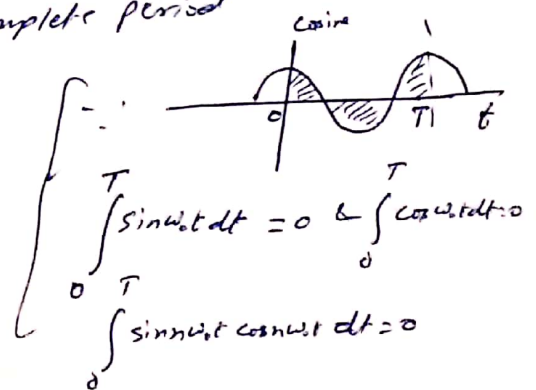 mplete period
cosine
∵
0 T t
∫₀ᵀ sinω₀t dt = 0 & ∫₀ᵀ cosω₀t dt = 0
∫₀ᵀ sinnω₀t cosnω₀t dt = 0